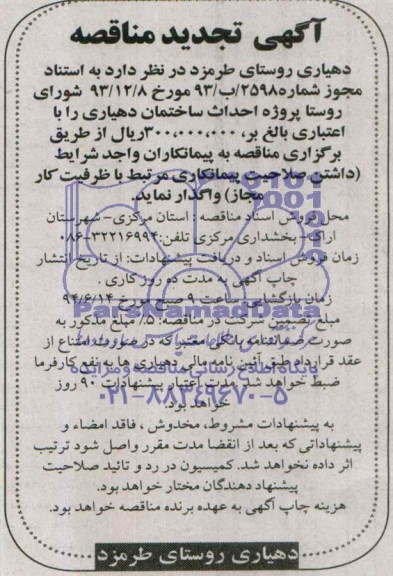 آگهی تجدید مناقصه
دهیاری روستای طرمزد در نظر دارد به استناد
مجوز شماره۲۵۹۸/ب/۹۳ مورخ ۹۳/۱۲/۸ شورای
روستا پروژه احداث ساختمان دهیاری را با
اعتباری بالغ بر، ۳۰۰،۰۰۰،۰۰۰ریال از طریق
برگزاری مناقصه به پیمانکاران واجد شرایط
(داشتن صلاحیت پیمانکاری مرتبط با ظرفیت کار
مجاز) واگذار نماید.
محل فروش اسناد مناقصه : استان مرکزی– شهرستان
اراک– بخشداری مرکزی تلفن:۳۲۲۱۶۹۹۴–۰۸۶
زمان فروش اسناد و دریافت پیشنهادات: از تاریخ انتشار
چاپ آگهی به مدت ده روز کاری .
زمان بازگشایی ساعت ۹ صبح مورخ ۹۴/۶/۱۴
ParsNamadData
مبلغ تضمین شرکت در مناقصه: ۵٪ مبلغ مذکور به
صورت ضمانتنامه بانکی معتبر که در صورت امتناع از
عقد قرارداد طبق آئین نامه مالی دهیاری ها به نفع کارفرما
پایگاه اطلاع رسانی مناقصه و مزایده
ضبط خواهد شد. مدت اعتبار پیشنهادات ۹۰ روز
۰۲۱-۸۸۳۴۹۶۷۰-۵
خواهد بود.
به پیشنهادات مشروط، مخدوش ، فاقد امضاء و
پیشنهاداتی که بعد از انقضا مدت مقرر واصل شود ترتیب
اثر داده نخواهد شد. کمیسیون در رد و تائید صلاحیت
پیشنهاد دهندگان مختار خواهد بود.
هزینه چاپ آگهی به عهده برنده مناقصه خواهد بود.
دهیاری روستای طرمزد